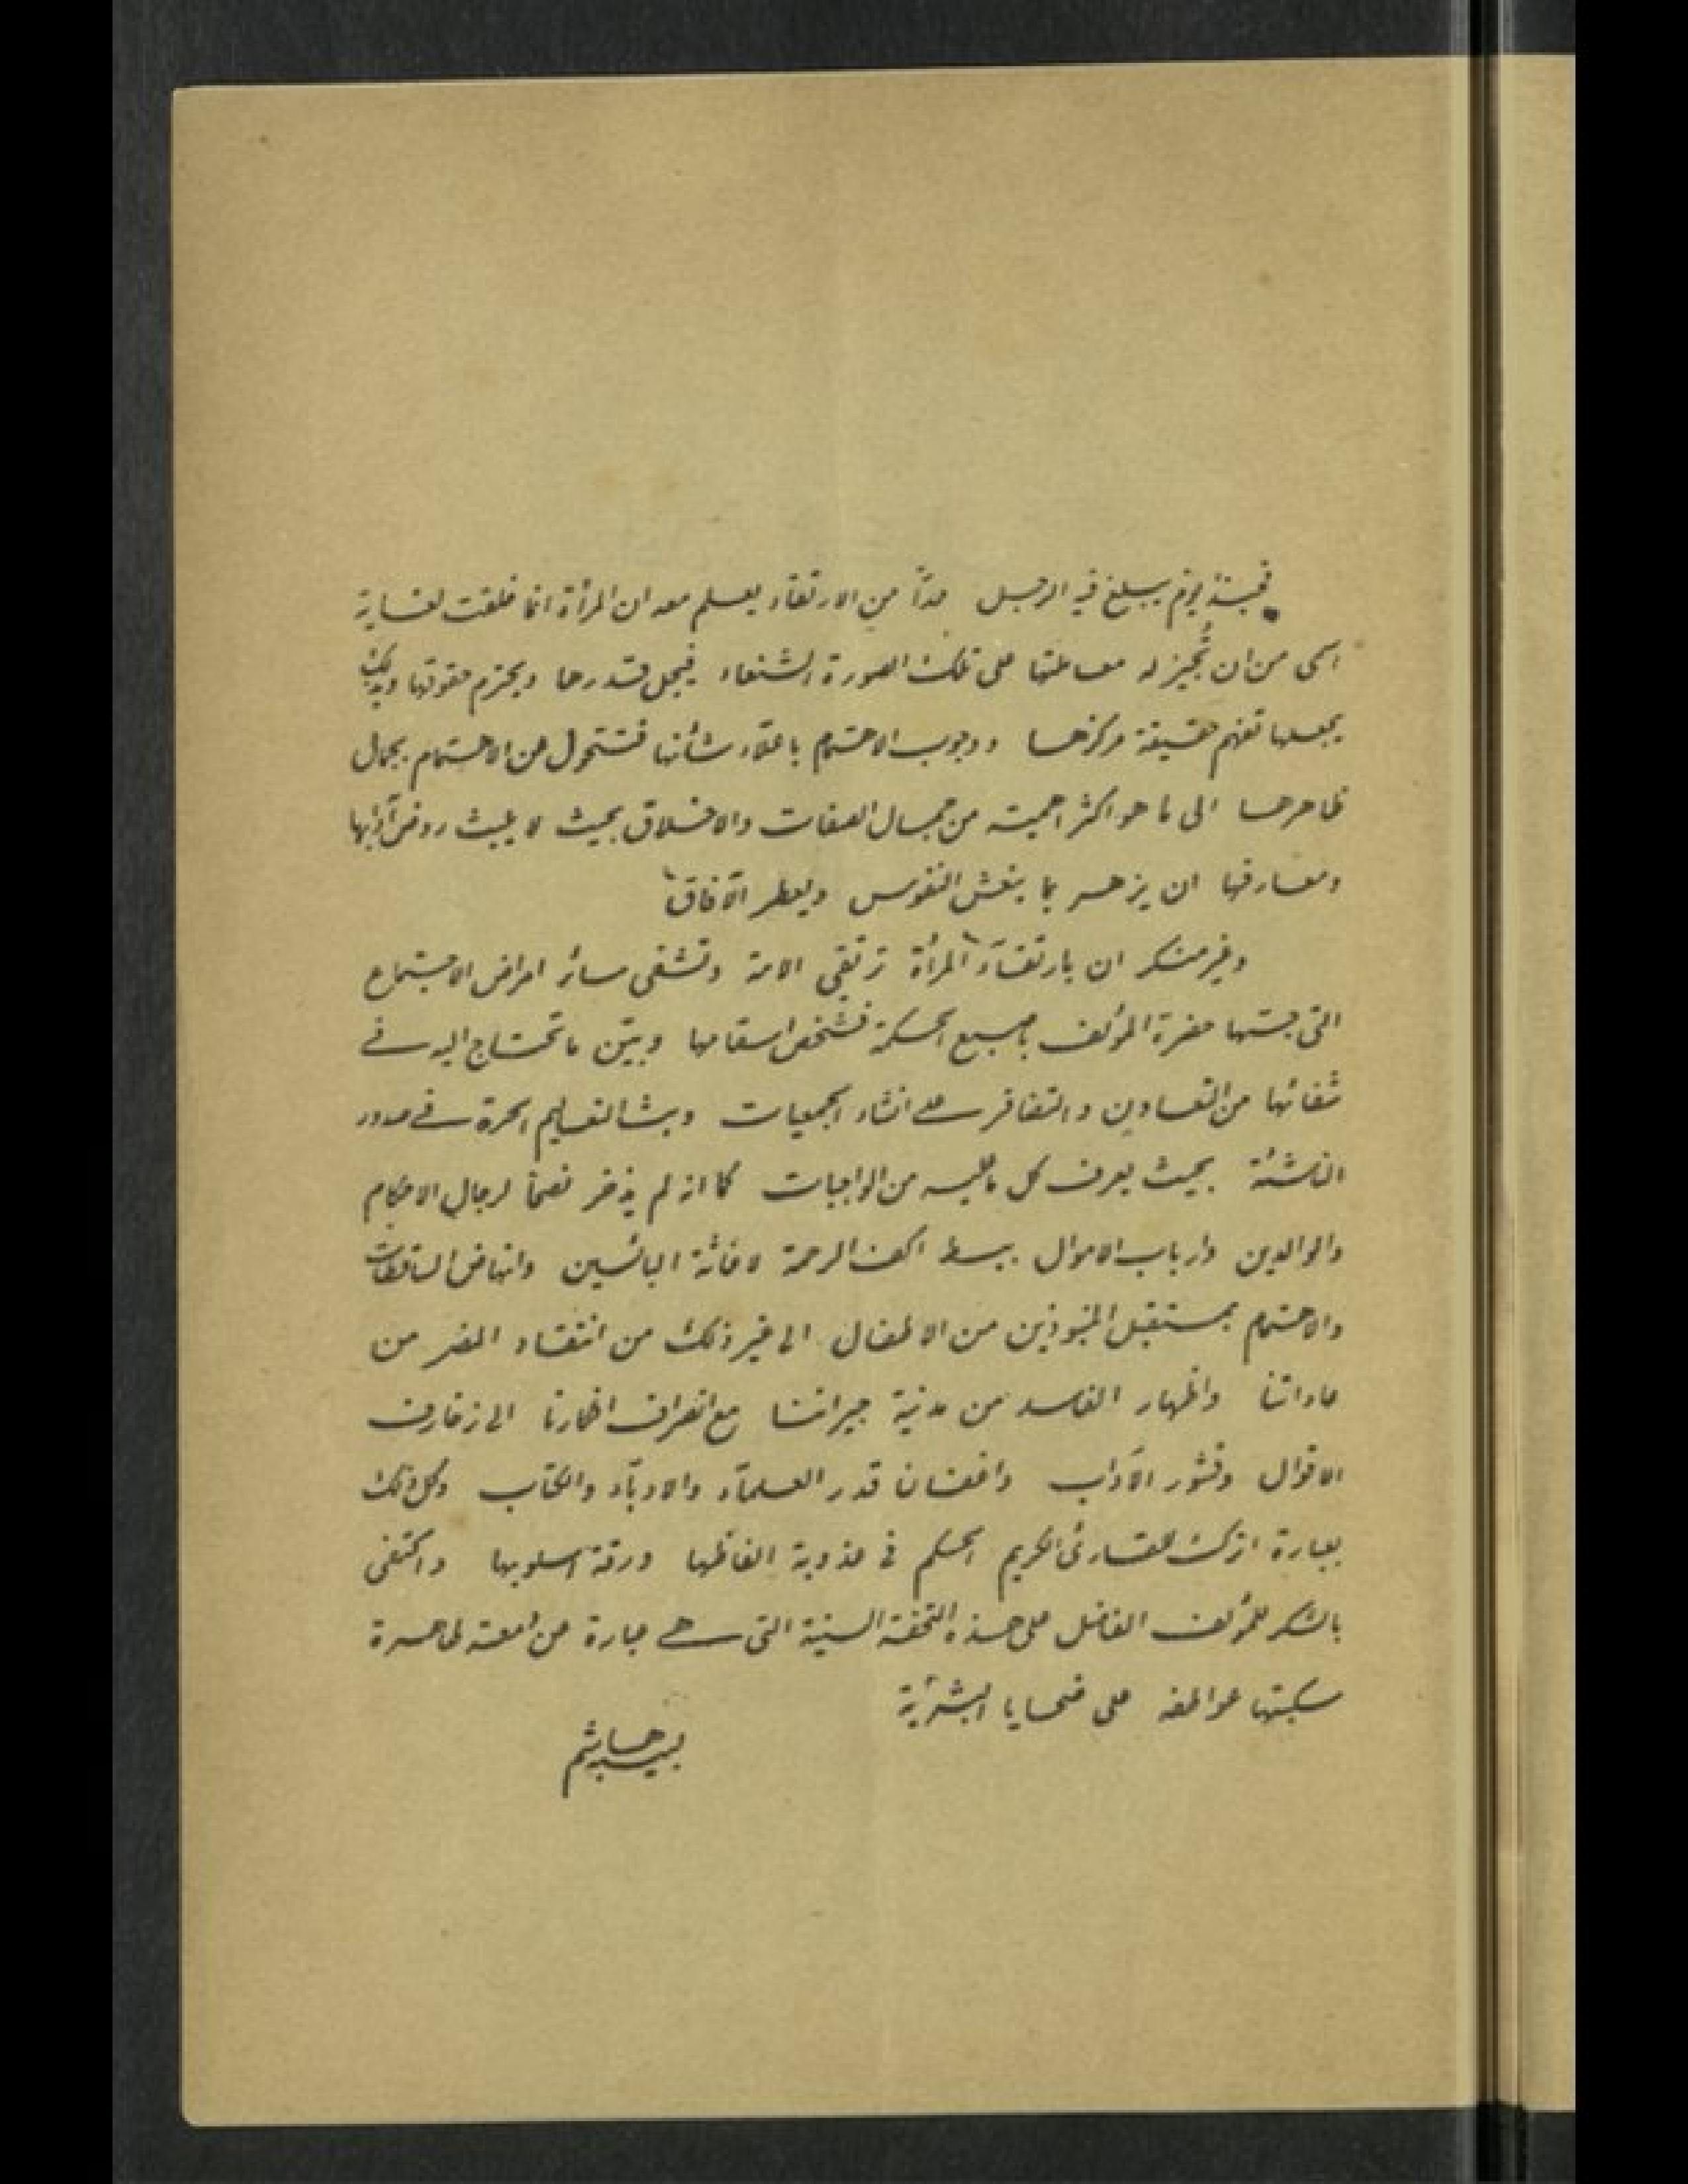 فحبذا يوم يبلغ فيه الرجل حداً من الارتقاء يعلم معه ان المرأة انما خلقت لغاية
اسمى من ان تُجيز له معاملتها على تلك الصورة الشنعاء فيجل قدرها ويحترم حقوقها وبذلك
يجعلها تفهم حقيقة مركزها ووجوب الاهتمام باعلاء شأنها فتتحول عن الاهتمام بجمال
ظاهرها الى ما هو اكثر اهمية من جمال الصفات والاخلاق بحيث لا يلبث روض آدابها
ومعارفها ان يزهر بما ينعش النفوس ويعطر الآفاق
وغير منكر ان بارتقاء المرأة ترتقي الامة وتشفى سائر امراض الاجتماع
التي جسّها حضرة المؤلف باصبع الحكمة فشخص اسقامها وبيّن ما تحتاج اليه في
شفائها من التعاون والتضافر على انشاء الجمعيات وبث التعاليم الحرة في صدور
الناشئة بحيث يعرف كل ما عليه من الواجبات كما انه لم يذخر نصحاً لرجال الاحكام
والوالدين وارباب الاموال ببسط اكف الرحمة لاغاثة البائسين وانهاض الساقطات
والاهتمام بمستقبل المنبوذين من الاطفال الى غير ذلك من انتقاد المضر من
عاداتنا واظهار الفاسد من مدنية جيراننا مع انصراف افكارنا الى زخارف
الاقوال وقشور الآداب واغفالنا قدر العلمآء والادبآء والكتاب وكل ذلك
بعبارة اترك للقارئ الكريم الحكم في عذوبة الفاظها ورقة اسلوبها واكتفي
بالشكر للمؤلف الفاضل على هذه التحفة السنية التي هي عبارة عن دمعة طاهرة
سكبتها عواطفه على ضحايا البشرية
لبيبه هاشم